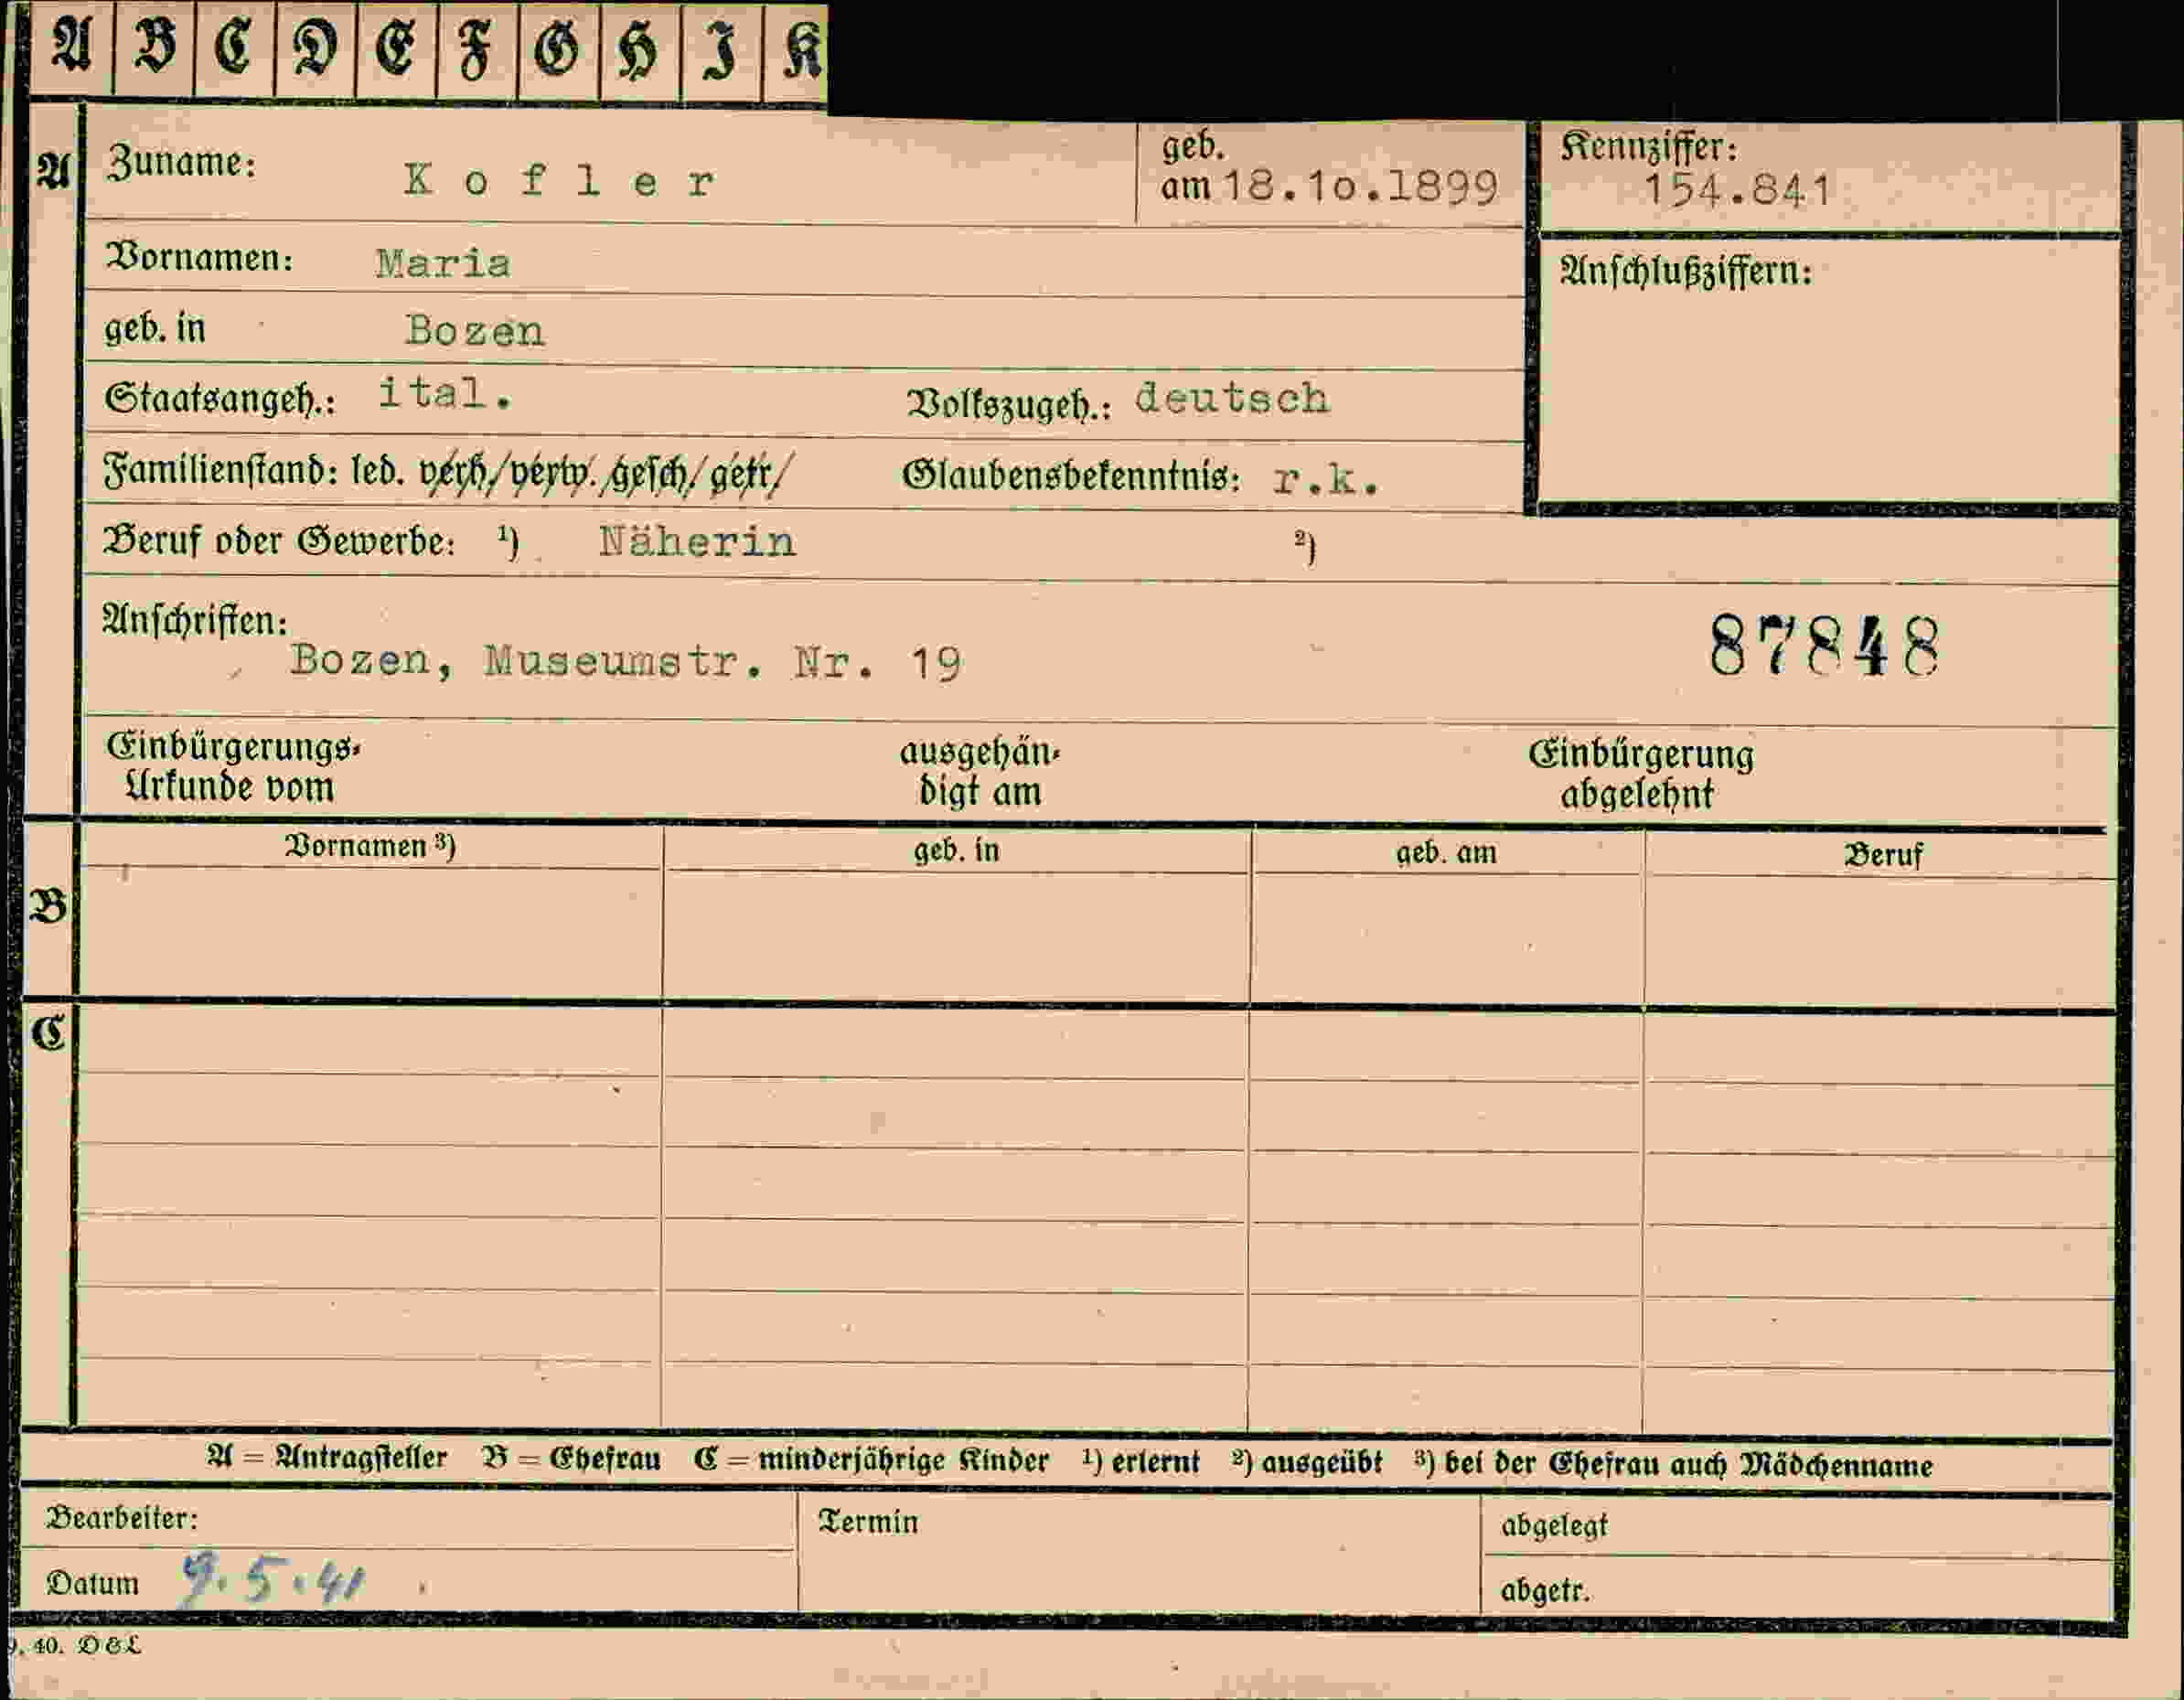 A B C D E F G H I K
A Zuname: Kofler geb. am 18.10.1899 Kennziffer: 154.841
Vornamen: Maria Anschlußziffern:
geb. in Bozen
Staatsangeh.: ital. Volkszugeh.: deutsch
Familienstand: led. verh/verw./gesch/getr/ Glaubensbekenntnis: r.k.
Beruf oder Gewerbe: ¹) Näherin ²)
Anschriften: 87848
Bozen, Museumstr. Nr. 19
Einbürgerungs- ausgehän- Einbürgerung
Urkunde vom digt am abgelehnt
Vornamen ³) geb. in geb. am Beruf
B
C
A = Antragsteller B = Ehefrau C = minderjährige Kinder ¹) erlernt ²) ausgeübt ³) bei der Ehefrau auch Mädchenname
Bearbeiter: Termin abgelegt
Datum 9.5.41 abgetr.
40. D&L